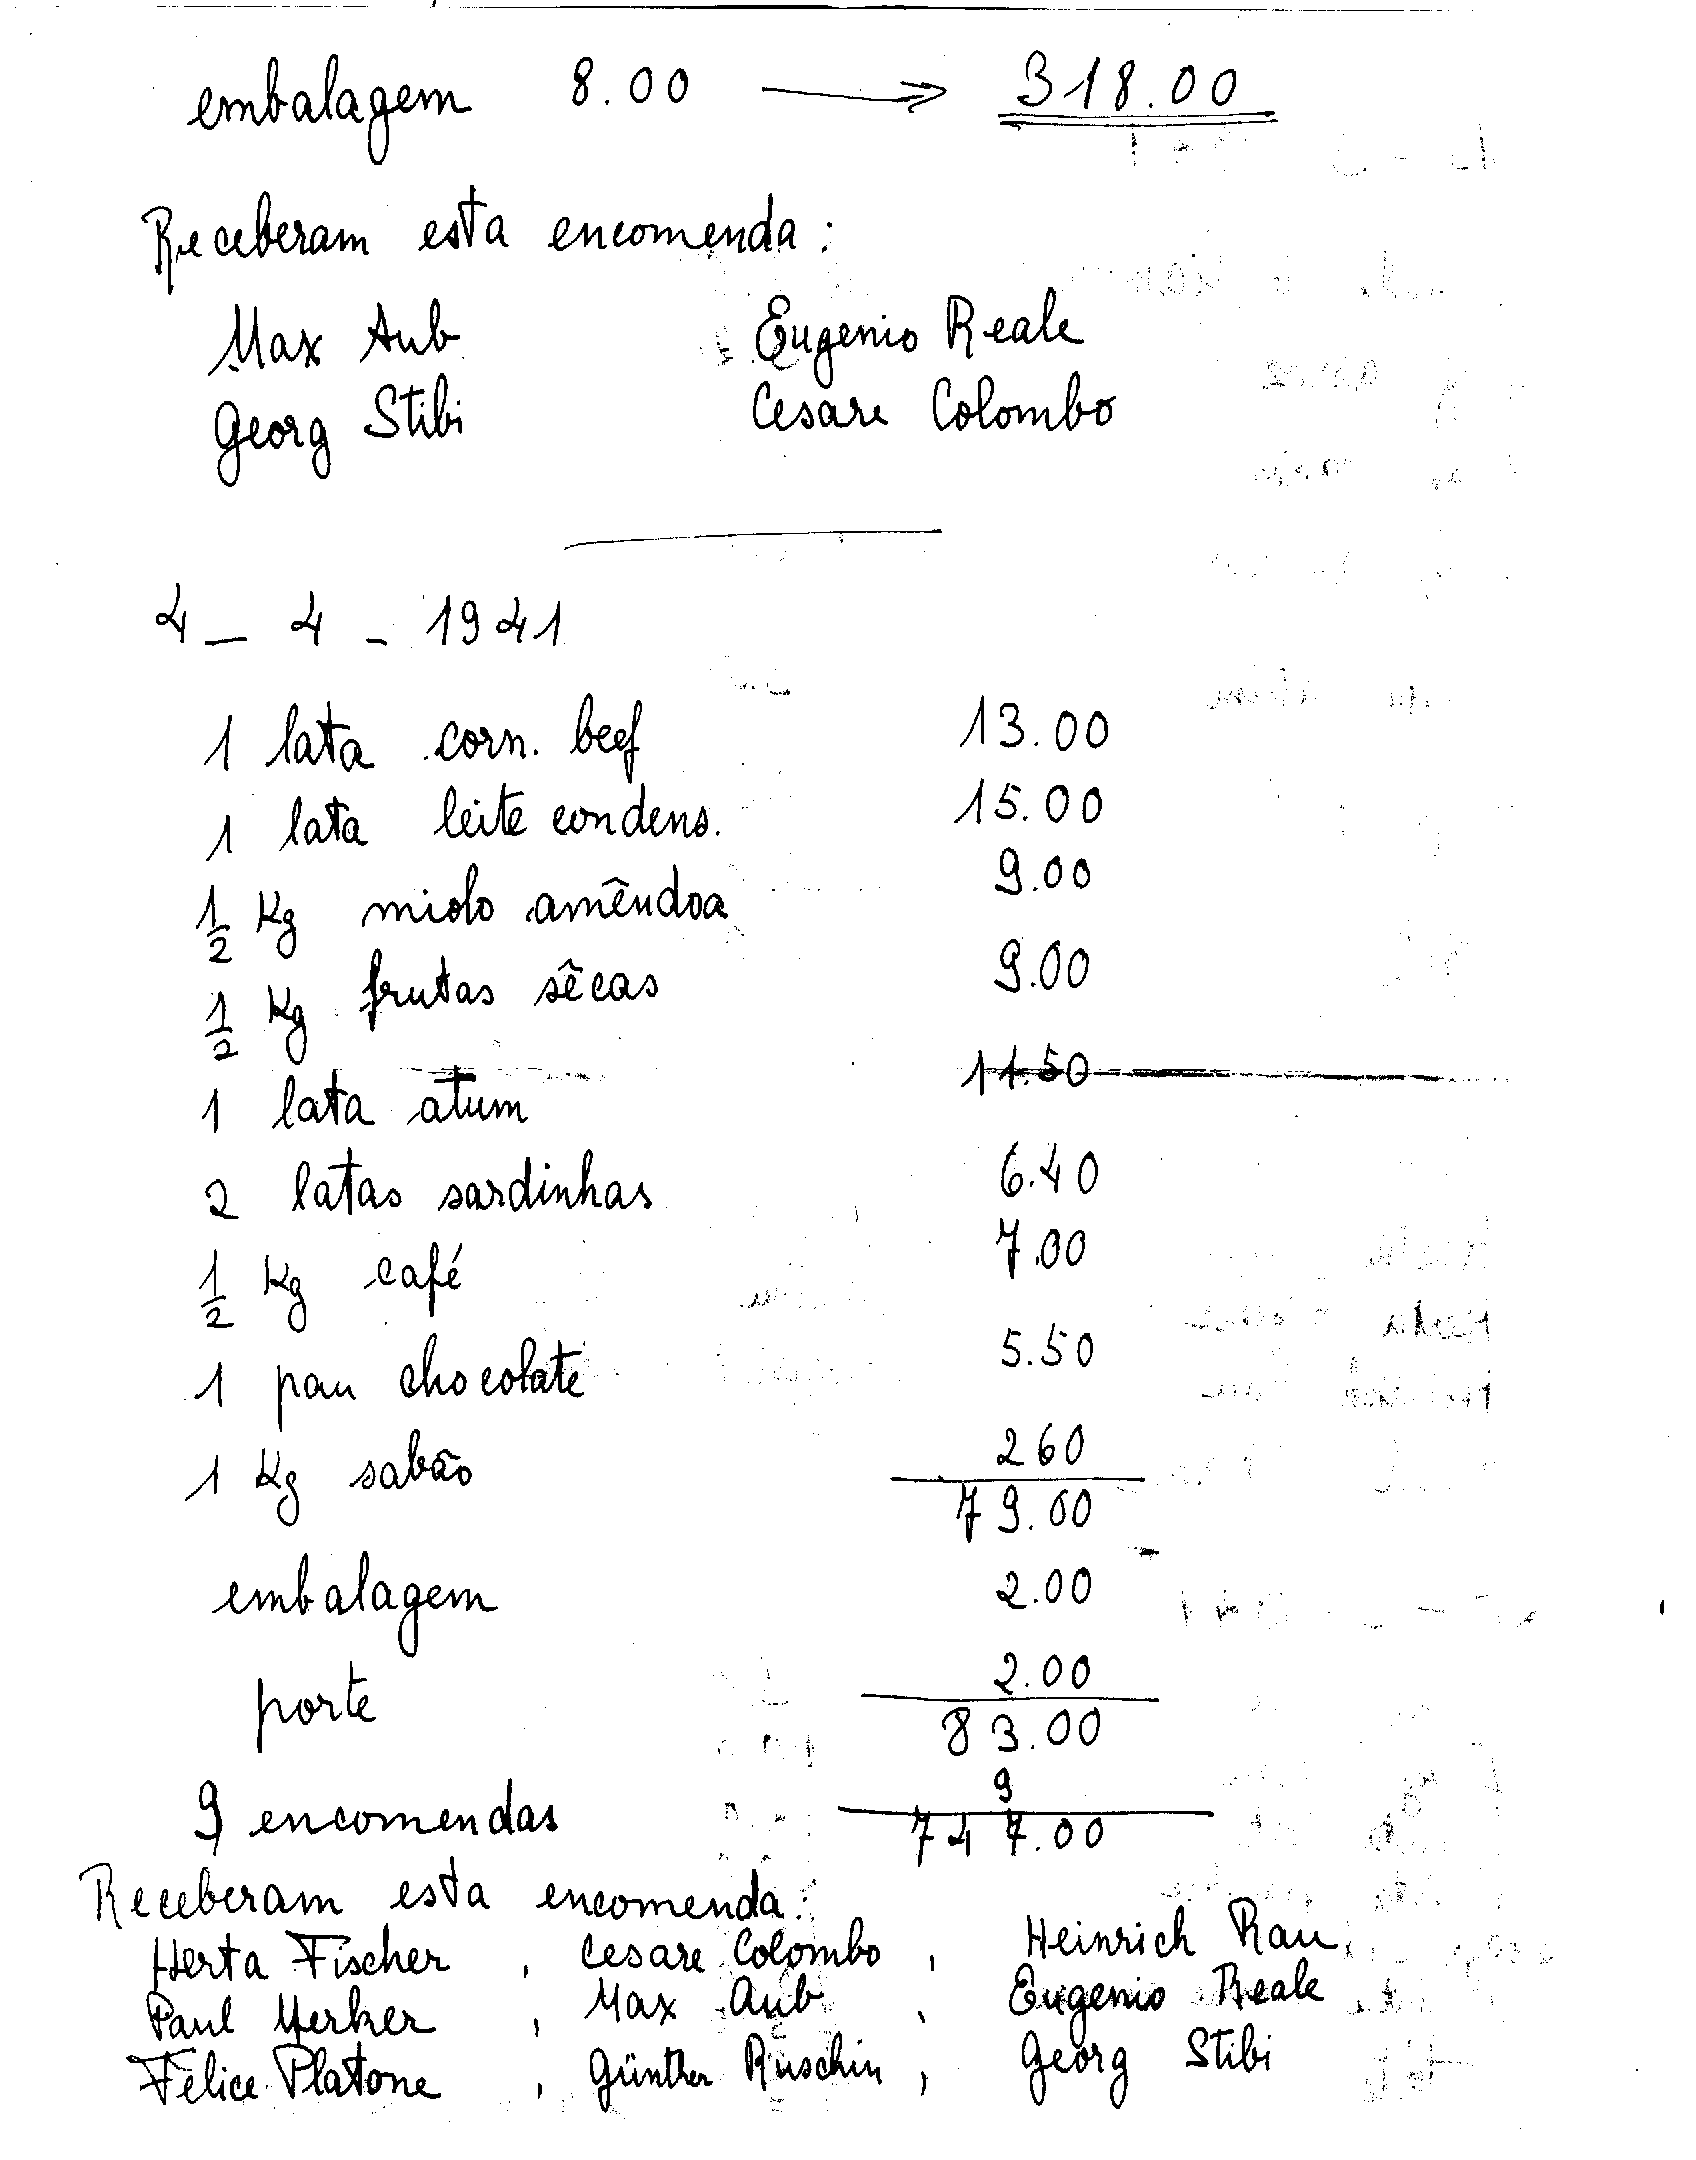 embalagem 8.00 → 318.00
Receberam esta encomenda:
Max Aub Eugenio Reale
Georg Stibi Cesare Colombo
4 – 4 – 1941
1 lata corn. beef 13.00
1 lata leite condens. 15.00
1/2 Kg miolo amêndoa 9.00
1/2 Kg frutas sêcas 9.00
1 lata atum 11.50
2 latas sardinhas 6.40
1/2 Kg café 7.00
1 pau chocolate 5.50
1 Kg sabão 260
79.00
embalagem 2.00
porte 2.00
83.00
9
9 encomendas 747.00
Receberam esta encomenda:
Herta Fischer , Cesare Colombo , Heinrich Rau,
Paul Merker , Max Aub , Eugenio Reale
Felice Platone , Günther Ruschin , Georg Stibi